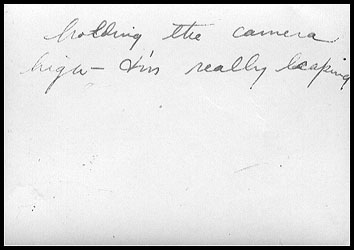 holding the camera
high – I'm really leaping